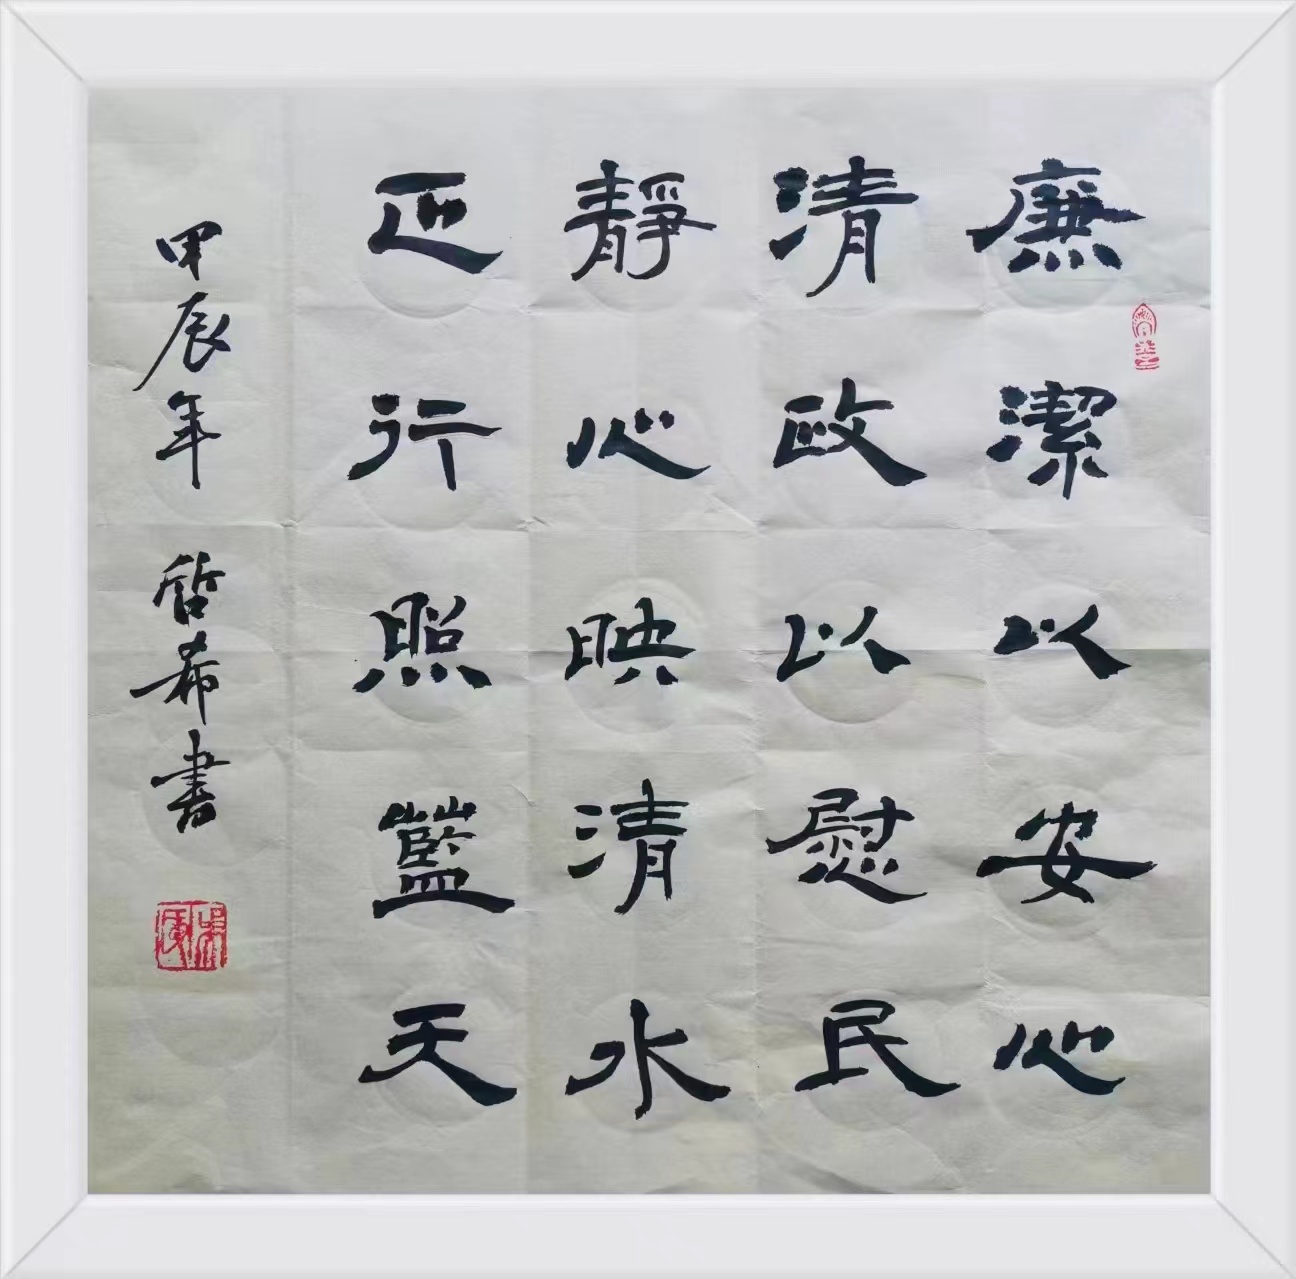 廉潔以安心
清政以慰民
靜心映清水
正行照藍天
甲辰年 哲希書